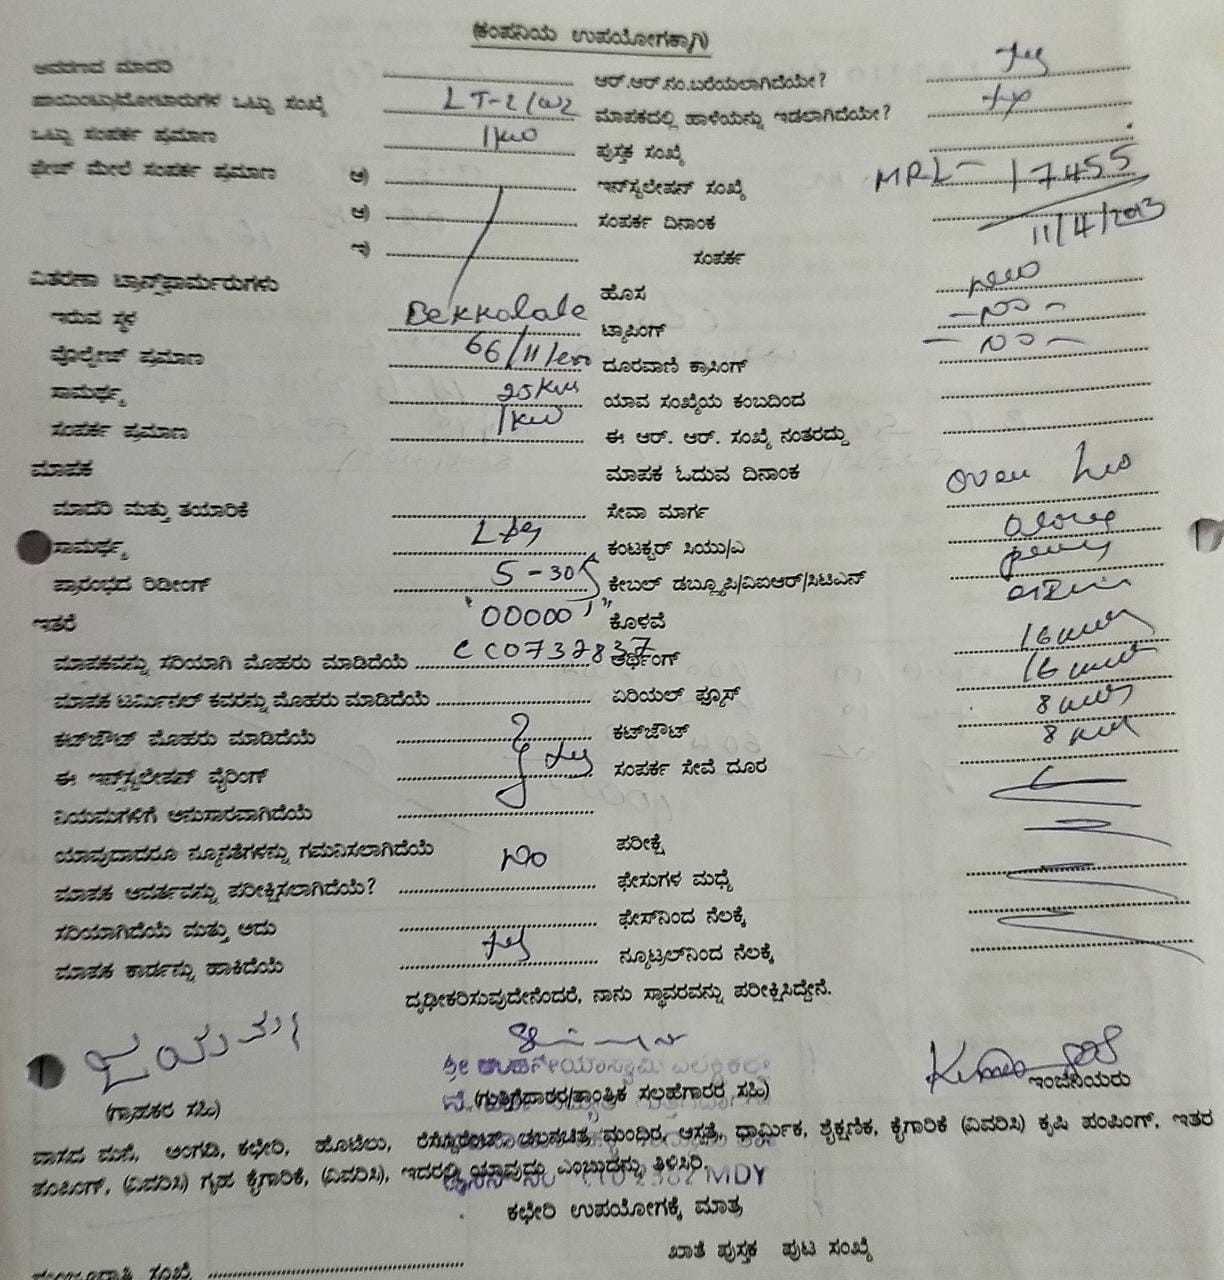 (ಕಂಪನಿಯ ಉಪಯೋಗಕ್ಕಾಗಿ)
ಆವರಣದ ಮಾದರಿ ಆರ್.ಆರ್.ನಂ.ಬರೆಯಲಾಗಿದೆಯೇ? yes
ಪಾಯಿಂಟ್ಸು/ಮೋಟಾರುಗಳ ಒಟ್ಟು ಸಂಖ್ಯೆ LT-2/ ಮಾಪಕದಲ್ಲಿ ಹಾಳೆಯನ್ನು ಇಡಲಾಗಿದೆಯೇ?
ಒಟ್ಟು ಸಂಪರ್ಕ ಪ್ರಮಾಣ 1kw ಪುಸ್ತಕ ಸಂಖ್ಯೆ
ಫೇಜ್ ಮೇಲೆ ಸಂಪರ್ಕ ಪ್ರಮಾಣ ಅ) ಇನ್‌ಸ್ಟಲೇಷನ್ ಸಂಖ್ಯೆ MRL- 17455
ಆ) ಸಂಪರ್ಕ ದಿನಾಂಕ 11/4/2013
ಇ) ಸಂಪರ್ಕ
ವಿತರಣಾ ಟ್ರಾನ್ಸ್‌ಫಾರ್ಮರುಗಳು ಹೊಸ new
ಇರುವ ಸ್ಥಳ Bekkalale ಟ್ಯಾಪಿಂಗ್ -no-
ವೋಲ್ಟೇಜ್ ಪ್ರಮಾಣ 66/11/ ದೂರವಾಣಿ ಕ್ರಾಸಿಂಗ್ -no-
ಸಾಮರ್ಥ್ಯ 25kva ಯಾವ ಸಂಖ್ಯೆಯ ಕಂಬದಿಂದ
ಸಂಪರ್ಕ ಪ್ರಮಾಣ 1kw ಈ ಆರ್. ಆರ್. ಸಂಖ್ಯೆ ನಂತರದ್ದು
ಮಾಪಕ ಮಾಪಕ ಓದುವ ದಿನಾಂಕ
ಮಾದರಿ ಮತ್ತು ತಯಾರಿಕೆ ಸೇವಾ ಮಾರ್ಗ
ಸಾಮರ್ಥ್ಯ ಕಂಟಕ್ಟರ್ ಸಿಯು/ಎ
ಪ್ರಾರಂಭದ ರಿಡೀಂಗ್ 5-30 ಕೇಬಲ್ ಡಬ್ಲ್ಯೂಪಿ/ವಿಐಆರ್/ಸಿಟಿಎನ್
ಇತರೆ "00000" ಕೊಳವೆ
ಮಾಪಕವನ್ನು ಸರಿಯಾಗಿ ಮೊಹರು ಮಾಡಿದೆಯೆ CC0732837 ಆರ್ಥಿಂಗ್
ಮಾಪಕ ಟರ್ಮಿನಲ್ ಕವರನ್ನು ಮೊಹರು ಮಾಡಿದೆಯೆ ಏರಿಯಲ್ ಫ್ಯೂಸ್
ಕಟ್‌ಔಟ್ ಮೊಹರು ಮಾಡಿದೆಯೆ ಕಟ್‌ಔಟ್
ಈ ಇನ್‌ಸ್ಟಲೇಷನ್ ವೈರಿಂಗ್ yes ಸಂಪರ್ಕ ಸೇವೆ ದೂರ
ನಿಯಮಗಳಿಗೆ ಅನುಸಾರವಾಗಿದೆಯೆ
ಯಾವುದಾದರೂ ನ್ಯೂನತೆಗಳನ್ನು ಗಮನಿಸಲಾಗಿದೆಯೆ No ಪರೀಕ್ಷೆ
ಮಾಪಕ ಆವರ್ತವನ್ನು ಪರೀಕ್ಷಿಸಲಾಗಿದೆಯೆ? ಫೇಸುಗಳ ಮಧ್ಯೆ
ಸರಿಯಾಗಿದೆಯೆ ಮತ್ತು ಅದು ಫೇಸ್‌ನಿಂದ ನೆಲಕ್ಕೆ
ಮಾಪಕ ಕಾರ್ಡನ್ನು ಹಾಕಿದೆಯೆ yes ನ್ಯೂಟ್ರಲ್‌ನಿಂದ ನೆಲಕ್ಕೆ
ದೃಢೀಕರಿಸುವುದೇನೆಂದರೆ, ನಾನು ಸ್ಥಾವರವನ್ನು ಪರೀಕ್ಷಿಸಿದ್ದೇನೆ.
ಜಯಮ್ಮ
(ಗ್ರಾಹಕರ ಸಹಿ) (ಗುತ್ತಿಗೆದಾರರ/ತಾಂತ್ರಿಕ ಸಲಹೆಗಾರರ ಸಹಿ) ಇಂಜಿನಿಯರು
ವಾಸದ ಮನೆ, ಅಂಗಡಿ, ಕಛೇರಿ, ಹೊಟೆಲು, ರೆಸ್ಟೋರೆಂಟ್, ಚಲನಚಿತ್ರ ಮಂಧಿರ, ಆಸ್ಪತ್ರೆ, ಧಾರ್ಮಿಕ, ಶೈಕ್ಷಣಿಕ, ಕೈಗಾರಿಕೆ (ವಿವರಿಸಿ) ಕೃಷಿ ಪಂಪಿಂಗ್, ಇತರ
ಪಂಪಿಂಗ್, (ವಿವರಿಸಿ) ಗೃಹ ಕೈಗಾರಿಕೆ, (ವಿವರಿಸಿ), ಇದರಲ್ಲಿ ಯಾವುದು ಎಂಬುದನ್ನು ತಿಳಿಸಿರಿ. MDY
ಕಛೇರಿ ಉಪಯೋಗಕ್ಕೆ ಮಾತ್ರ
ಖಾತೆ ಪುಸ್ತಕ ಪುಟ ಸಂಖ್ಯೆ
ಮಂಜೂರಾತಿ ಸಂಖ್ಯೆ